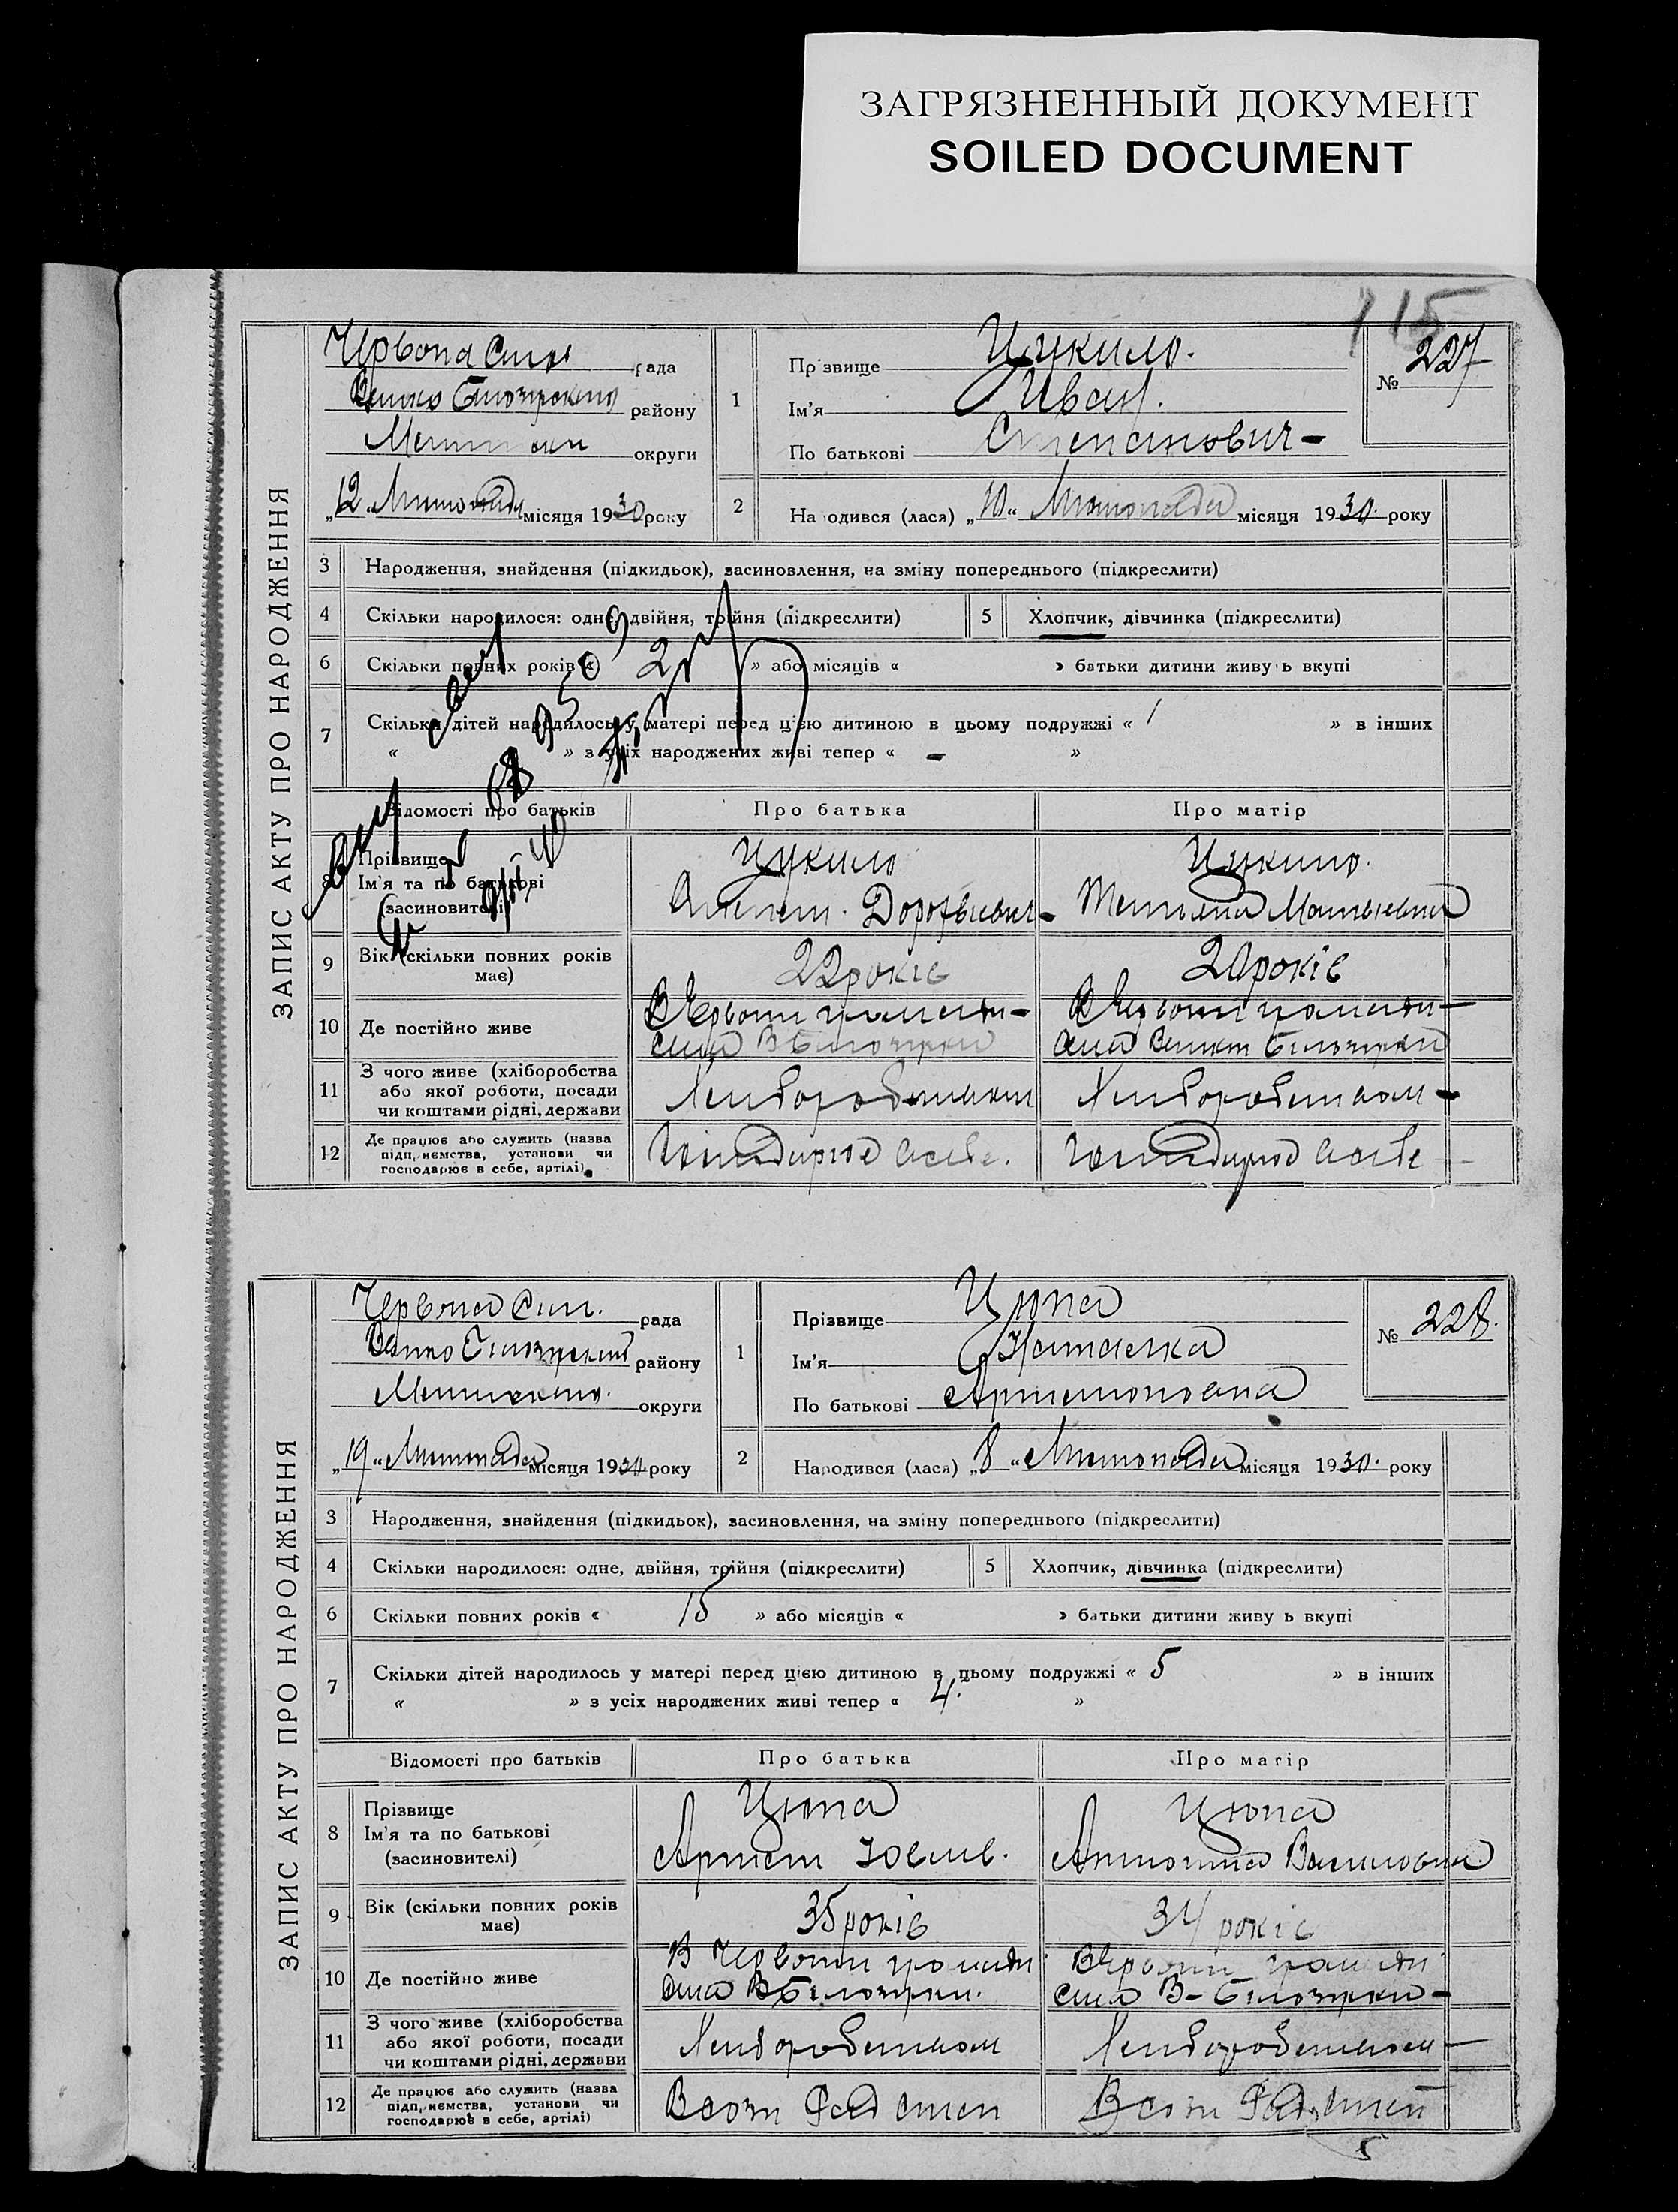 ЗАГРЯЗНЕННЫЙ ДОКУМЕНТ
SOILED DOCUMENT
115
ЗАПИС АКТУ ПРО НАРОДЖЕННЯ
Червона рада
району
округи
„12 Листопада місяця 1930 року
1
Прізвище Цукило.
Ім'я Иван.
По батькові Степанович
№ 227
2
Народився (лася) „10“ Листопада місяця 1930. року
3 Народження, знайдення (підкидьок), засиновлення, на зміну попереднього (підкреслити)
4 Скільки народилося: одне, двійня, трійня (підкреслити)
5 Хлопчик, дівчинка (підкреслити)
6 Скільки повних років « 2 » або місяців « » батьки дитини живуть вкупі
7 Скільки дітей народилось у матері перед цією дитиною в цьому подружжі « 1 » в інших
« » з усіх народжених живі тепер « - »
Відомості про батьків Про батька Про матір
8 Прізвище
Ім'я та по батькові
(засновителі)
Цукило
Цукило.
9 Вік (скільки повних років має)
22 років
20 років
10 Де постійно живе
В Червоний громади
села В Білозірки
В Червоний громади
села Білозірки
11 З чого живе (хліборобства
або якої роботи, посади
чи коштами рідні, держави
Хліборобством
Хліборобством
12 Де працює або служить (назва
підприємства, установи чи
господарює в себе, артілі)
ЗАПИС АКТУ ПРО НАРОДЖЕННЯ
Червона рада
району
округи
„19“ Листопада місяця 1930 року
1
Прізвище Цюпа
Ім'я Наталка
По батькові Артемоновна
№ 228.
2
Народився (лася) „8“ Листопада місяця 1930. року
3 Народження, знайдення (підкидьок), засиновлення, на зміну попереднього (підкреслити)
4 Скільки народилося: одне, двійня, трійня (підкреслити)
5 Хлопчик, дівчинка (підкреслити)
6 Скільки повних років « 15 » або місяців « » батьки дитини живуть вкупі
7 Скільки дітей народилось у матері перед цією дитиною в цьому подружжі « 5 » в інших
« » з усіх народжених живі тепер « 4. »
Відомості про батьків Про батька Про матір
8 Прізвище
Ім'я та по батькові
(засиновителі)
Цюпа
Артем
Цюпа
9 Вік (скільки повних років має)
35 років
34 років
10 Де постійно живе
В Червоний громади
села В Білозірки.
В Червоний громади
села В-Білозірки
11 З чого живе (хліборобства
або якої роботи, посади
чи коштами рідні, держави
Хліборобством
Хліборобством
12 Де працює або служить (назва
підприємства, установи чи
господарює в себе, артілі)
В созі
В созі